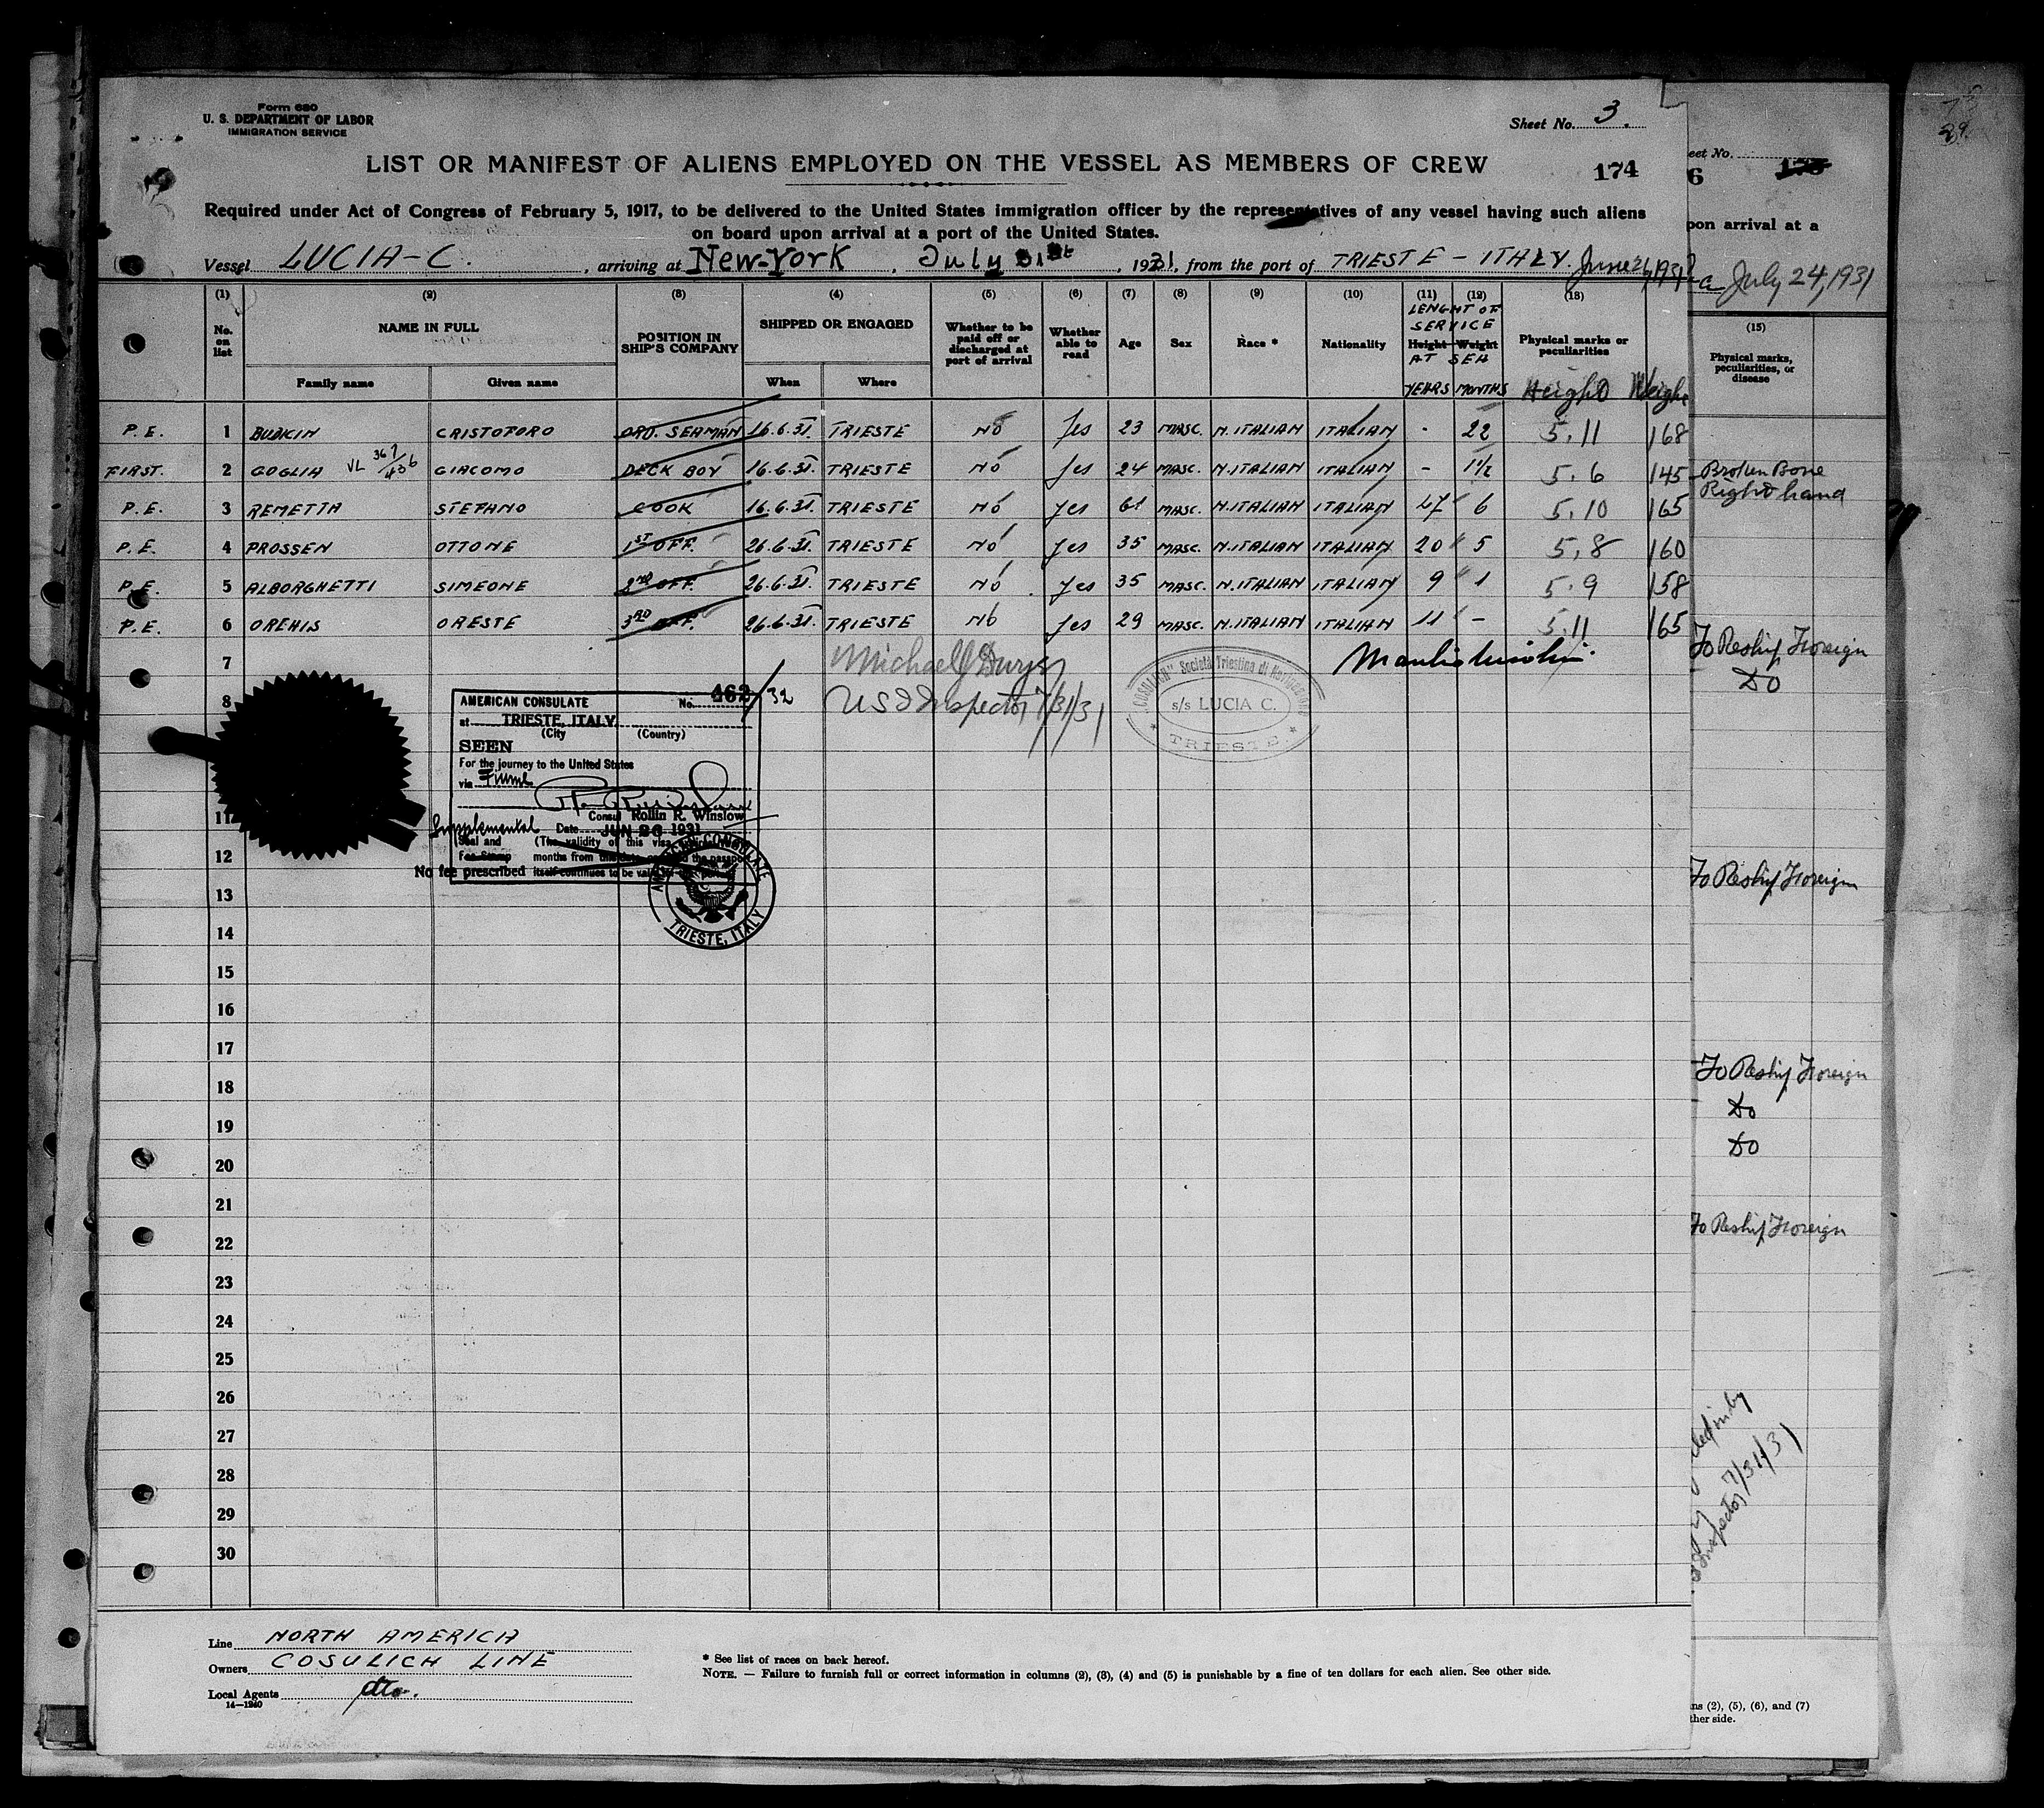 Form 680
U. S. DEPARTMENT OF LABOR
IMMIGRATION SERVICE
Sheet No. 3.
LIST OR MANIFEST OF ALIENS EMPLOYED ON THE VESSEL AS MEMBERS OF CREW
174
Required under Act of Congress of February 5, 1917, to be delivered to the United States immigration officer by the representatives of any vessel having such aliens
on board upon arrival at a port of the United States.
Vessel LUCIA-C. , arriving at New-York , July 31st , 1931, from the port of TRIESTE - ITALY. June 26, 1931
(1) (2) (3) (4) (5) (6) (7) (8) (9) (10) (11) (12) (13)
No. on list NAME IN FULL POSITION IN SHIP'S COMPANY SHIPPED OR ENGAGED Whether to be paid off or discharged at port of arrival Whether able to read Age Sex Race * Nationality LENGHT OF SERVICE AT SEA Height Weight Physical marks or peculiarities
Family name Given name When Where YEARS MONTHS Height Weight
P.E. 1 BUDICIN CRISTOFORO ORD. SEAMAN 16.6.31. TRIESTE No Yes 23 MASC. N.ITALIAN ITALIAN - 22 5.11 168
FIRST. 2 GOGLIA VL 367/436 GIACOMO DECK BOY 16.6.31. TRIESTE No Yes 24 MASC. N.ITALIAN ITALIAN - 1 1/2 5.6 145
P.E. 3 REMETTA STEFANO COOK 16.6.31. TRIESTE No Yes 61 MASC. N.ITALIAN ITALIAN 47 6 5.10 165
P.E. 4 PROSSEN OTTONE 1ST OFF. 26.6.31. TRIESTE No Yes 35 MASC. N.ITALIAN ITALIAN 20 5 5.8 160
P.E. 5 ALBORGHETTI SIMEONE 2ND OFF. 26.6.31. TRIESTE No Yes 35 MASC. N.ITALIAN ITALIAN 9 1 5.9 158
P.E. 6 OREHIS ORESTE 3RD OFF. 26.6.31. TRIESTE No Yes 29 MASC. N.ITALIAN ITALIAN 11 - 5.11 165
7
8
11
12
13
14
15
16
17
18
19
20
21
22
23
24
25
26
27
28
29
30
US Inspector 7/31/31
"COSULICH" Società Triestina di Navigazione
s/s LUCIA C.
* TRIESTE. *
AMERICAN CONSULATE No. 462/32
at TRIESTE, ITALY
(City (Country)
SEEN
For the journey to the United States
via Fiume
Consul Rollin R. Winslow
Supplemental Date JUN 26 1931
Seal and (The validity of this visa
Fee Stamp months from the passport
No fee prescribed itself continues to be valid
AMERICAN CONSULATE
TRIESTE, ITALY
Line NORTH AMERICA
Owners COSULICH LINE
Local Agents dto.
14—1240
* See list of races on back hereof.
NOTE. — Failure to furnish full or correct information in columns (2), (3), (4) and (5) is punishable by a fine of ten dollars for each alien. See other side.
eet No.
6
pon arrival at a
July 24, 1931
(15)
Physical marks, peculiarities, or disease
Broken Bone
Right hand
To Reship Foreign
Do
To Reship Foreign
To Reship Foreign
Do
Do
To Reship Foreign
Inspector 7/31/31
ns (2), (5), (6), and (7)
ther side.